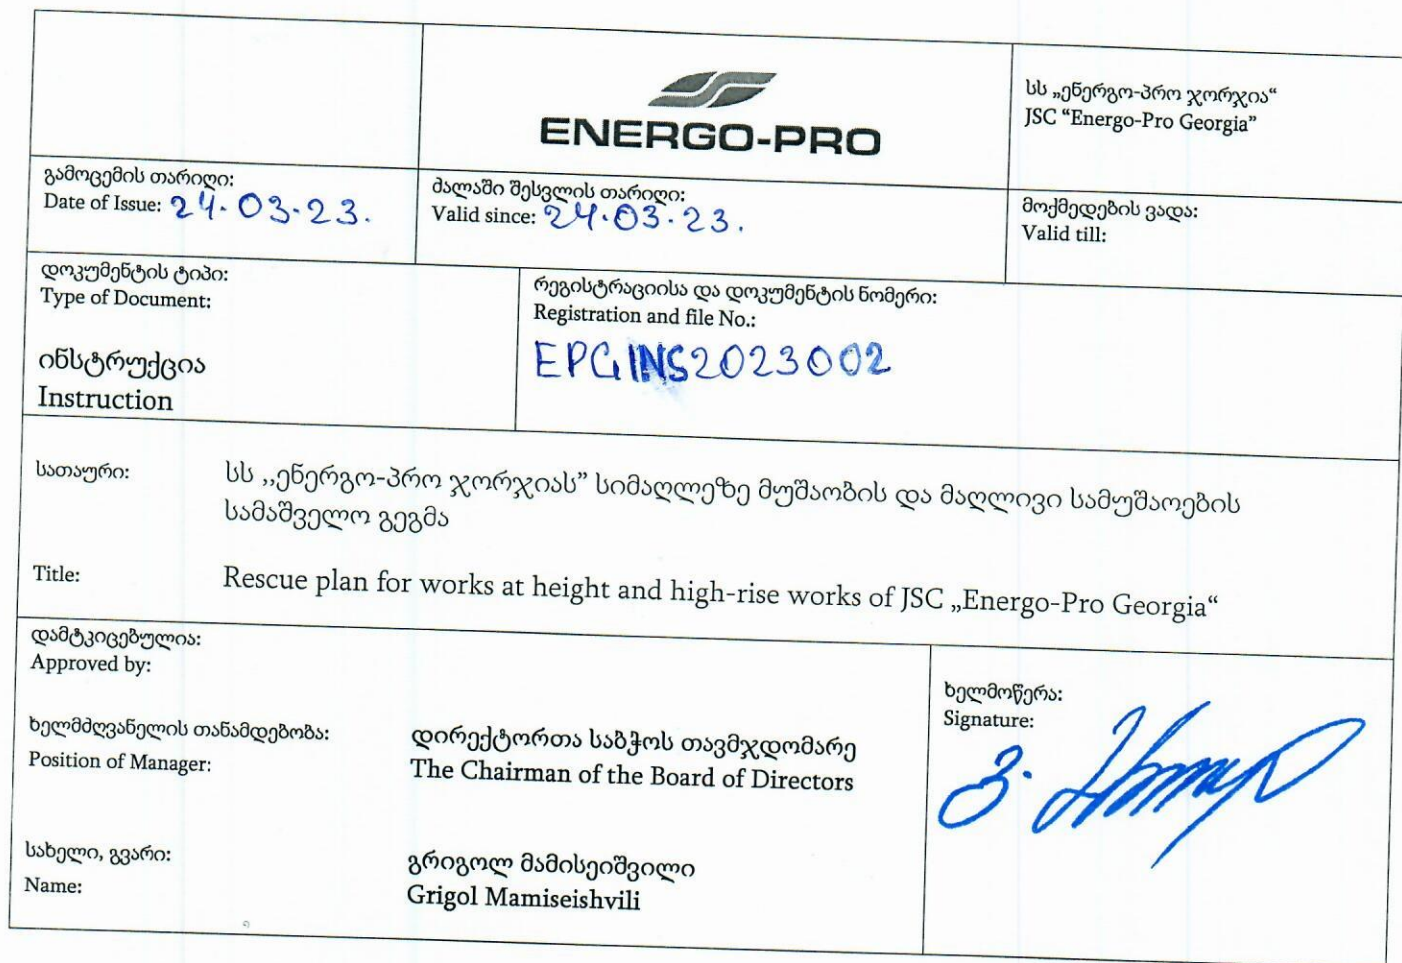 ENERGO-PRO
სს „ენერგო-პრო ჯორჯია“
JSC “Energo-Pro Georgia”
გამოცემის თარიღი:
Date of Issue: 24.03.23.
ძალაში შესვლის თარიღი:
Valid since: 24.03.23.
მოქმედების ვადა:
Valid till:
დოკუმენტის ტიპი:
Type of Document:
ინსტრუქცია
Instruction
რეგისტრაციისა და დოკუმენტის ნომერი:
Registration and file No.:
EPGINS2023002
სათაური:
სს ,,ენერგო-პრო ჯორჯიას” სიმაღლეზე მუშაობის და მაღლივი სამუშაოების
სამაშველო გეგმა
Title:
Rescue plan for works at height and high-rise works of JSC „Energo-Pro Georgia“
დამტკიცებულია:
Approved by:
ხელმძღვანელის თანამდებობა:
Position of Manager:
დირექტორთა საბჭოს თავმჯდომარე
The Chairman of the Board of Directors
სახელი, გვარი:
Name:
გრიგოლ მამისეიშვილი
Grigol Mamiseishvili
ხელმოწერა:
Signature: